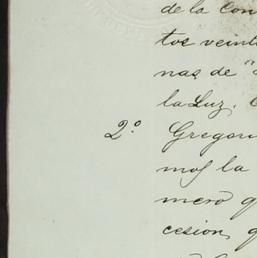 de la Con
tos veint
nas de "
la Luz.
2.º Gregori
mos la
mero q
cesion, q